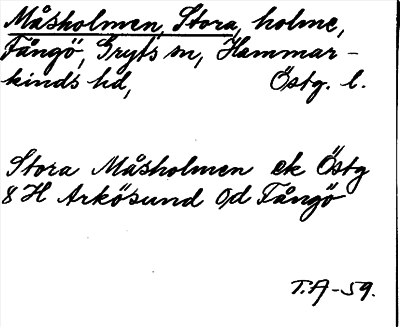 Måsholmen, Stora, holme,
Fångö, Gryts sn, Hammar-
kinds hd, Östg. l.
Stora Måsholmen ek Östg
8 H Arkösund O/d Fångö
T.A-59.